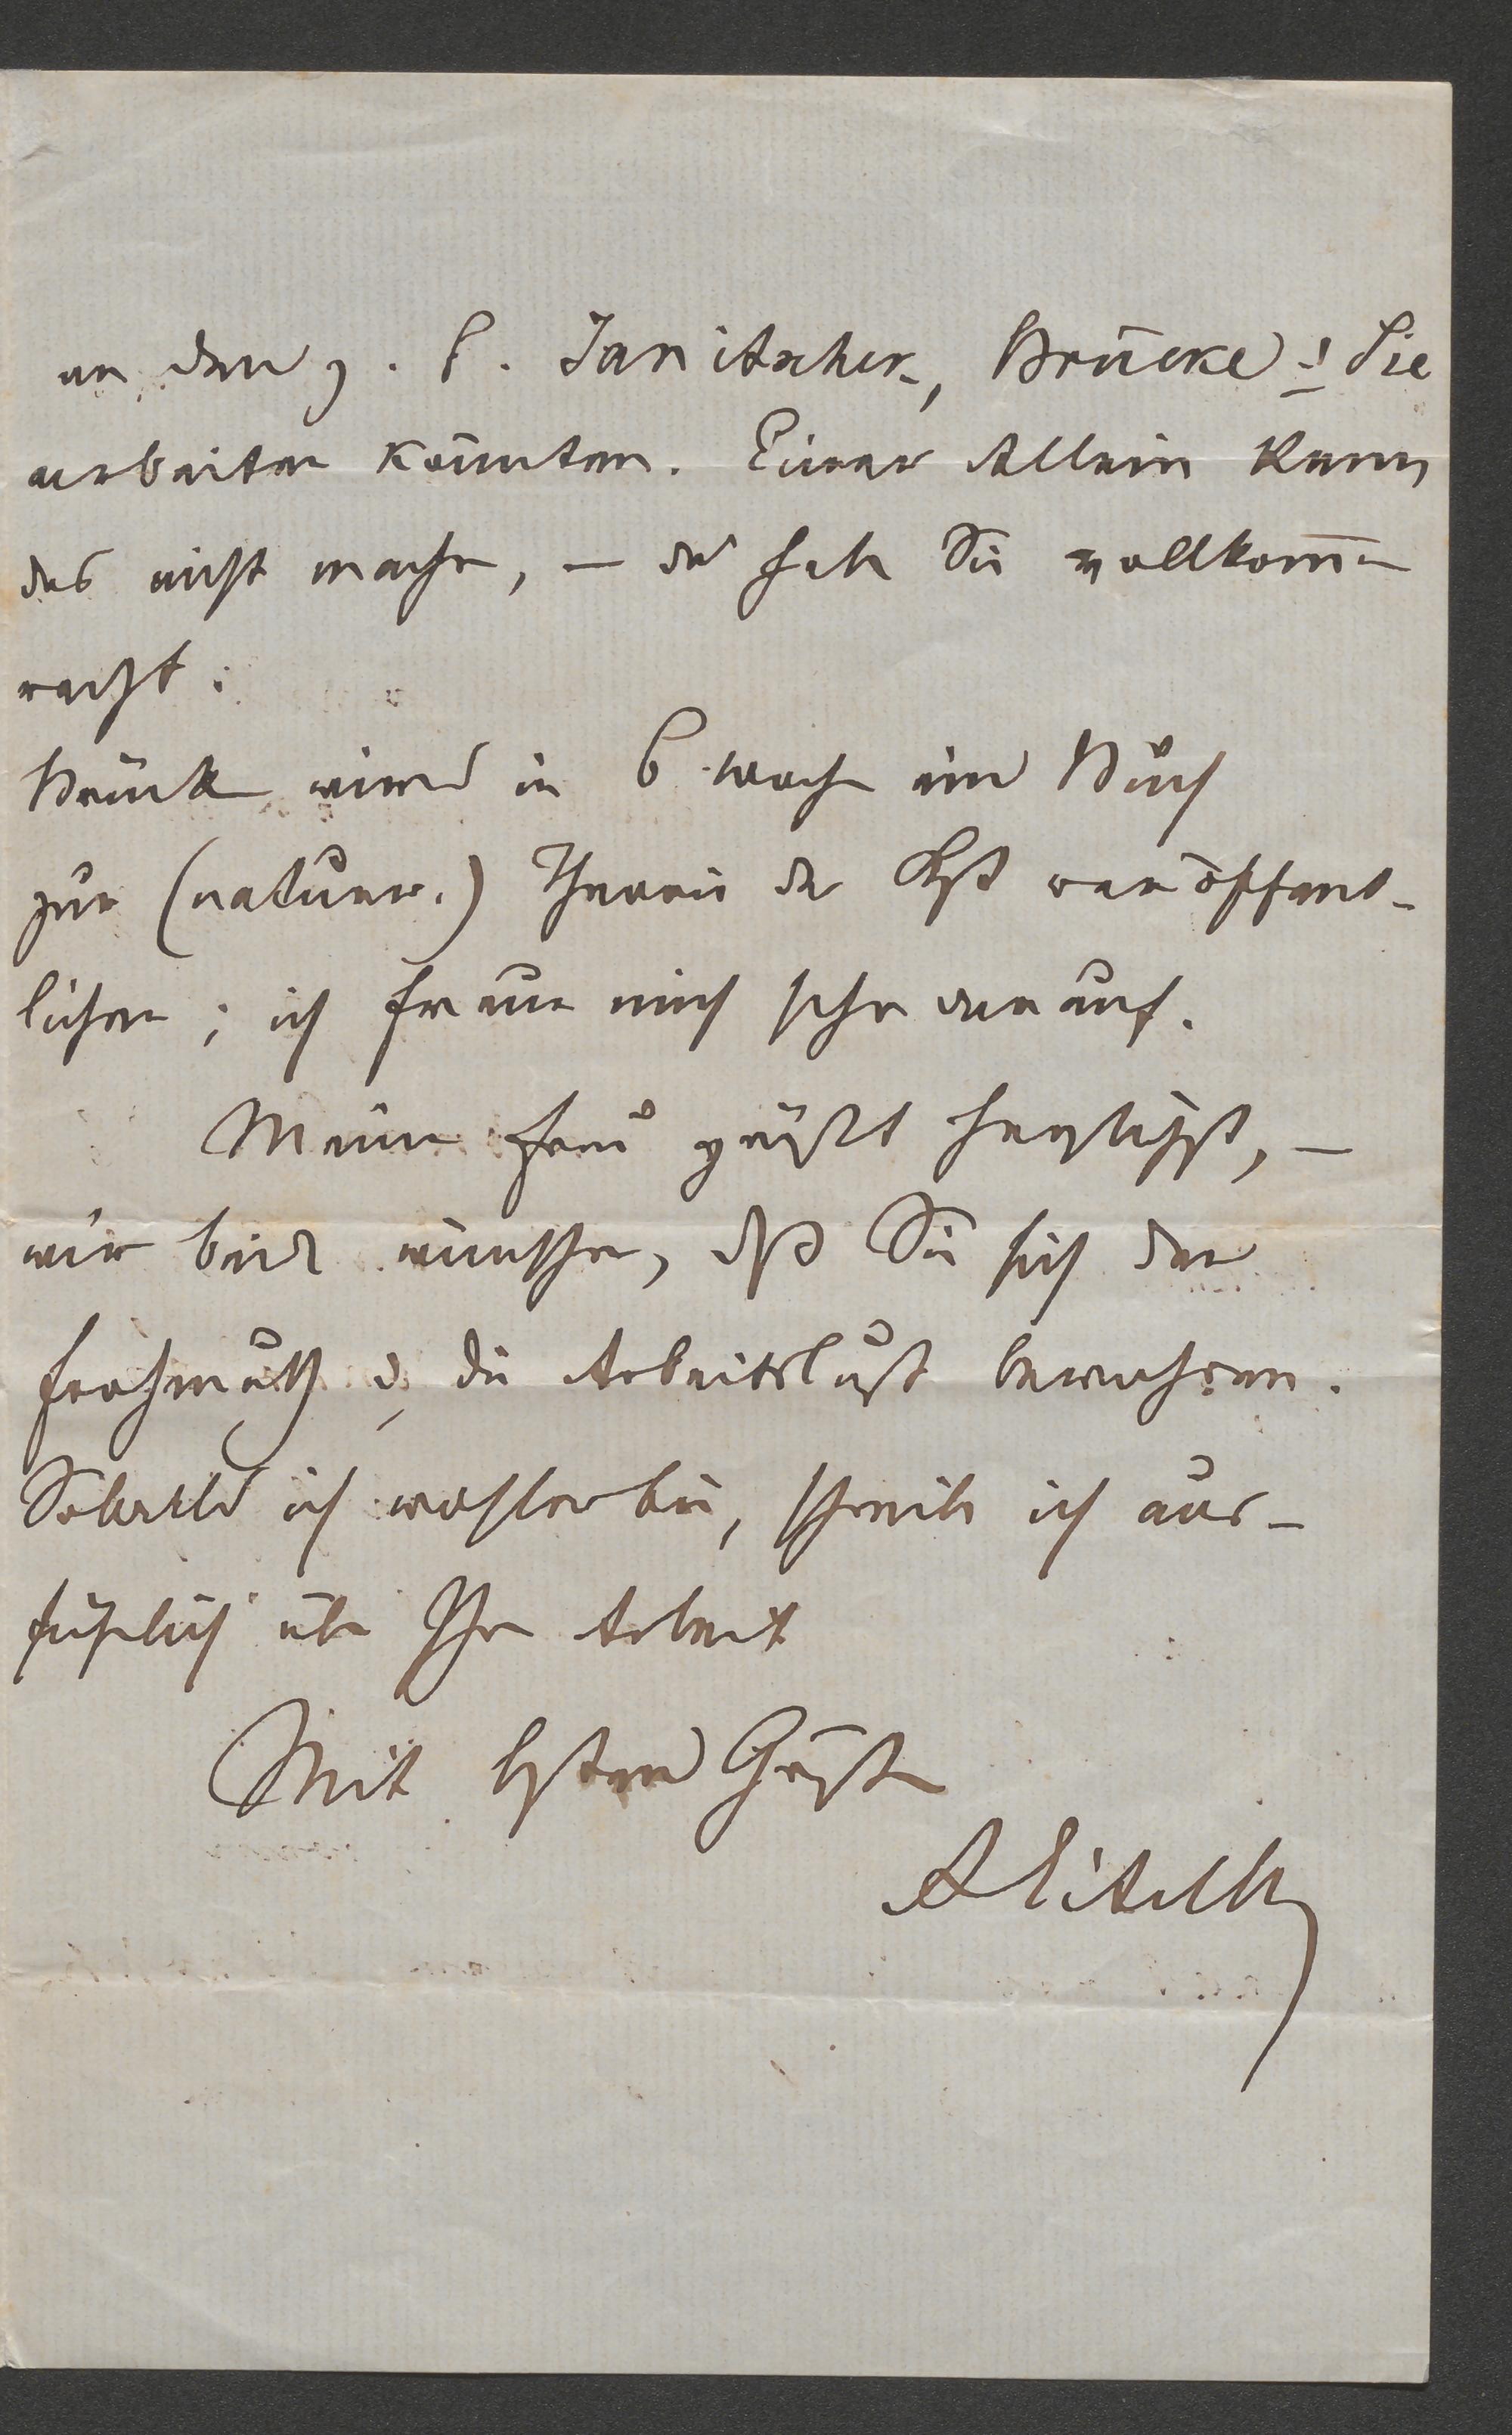 an dem z. B. Janitschek, Brücke & Sie
arbeiten könnten. Einer allein kann
das nicht machen, – da haben Sie vollkommen
recht.
Brücke wird in 6 Wochen ein Buch
zur (naturw.) Theorie der Kst veröffent-
lichen; ich freue mich sehr darauf.
Meine Frau grüßt herzlichst, –
wir beide wünschen, dß Sie sich den
Frohmuth & die Arbeitslust bewahren.
Sobald ich wohler bin, schreibe ich aus-
führlich über Ihre Arbeit
Mit besten Grüßen